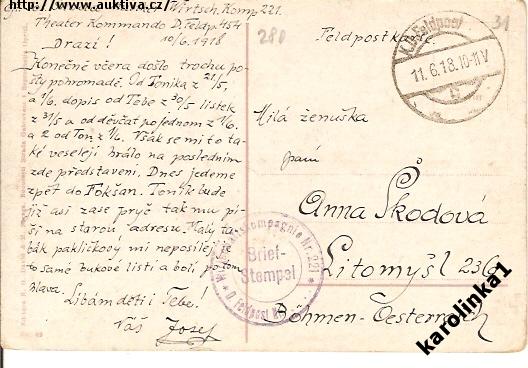 http://www.auktiva.cz/
Wirtsch. Komp 221.
Theater Kommando D. Feldp. 454
10/6. 1918
„Drazí!
Konečně včera došlo trochu po-
šty pohromadě. Od Toníka z 21/5,
a 1/6. dopis od Tebe z 30/5 lístek
z 31/5 a od děvčat po jednom z 1/6.
a 2 od Ton. z 1/6. Však se mi to ta-
ké veseleji hrálo na posledním
zde představení. Dnes jedeme
zpět do Fokšan. Toník bude
již asi zase pryč tak mu pí-
ši na starou adresu. Malý ta-
bák pakličkový mi neposílej, je
to samé bukové listí a bolí po tom
hlava. Líbám děti i Tebe!
Váš Josef
280
31
Feldpostkarte
K.u.K. Feldpost
11.6.18.10-11V
Milá ženuška
paní
Anna Škodová
Litomyšl
Böhmen-Oesterreich
Nr. 221
Brief-
Stempel
karolinka1